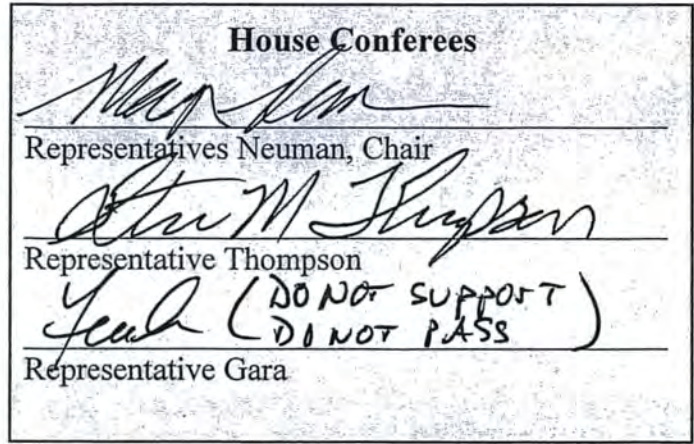 House Conferees
Representatives Neuman, Chair
M Thompson
Representative Thompson
(DO NOT SUPPORT
DO NOT PASS)
Representative Gara